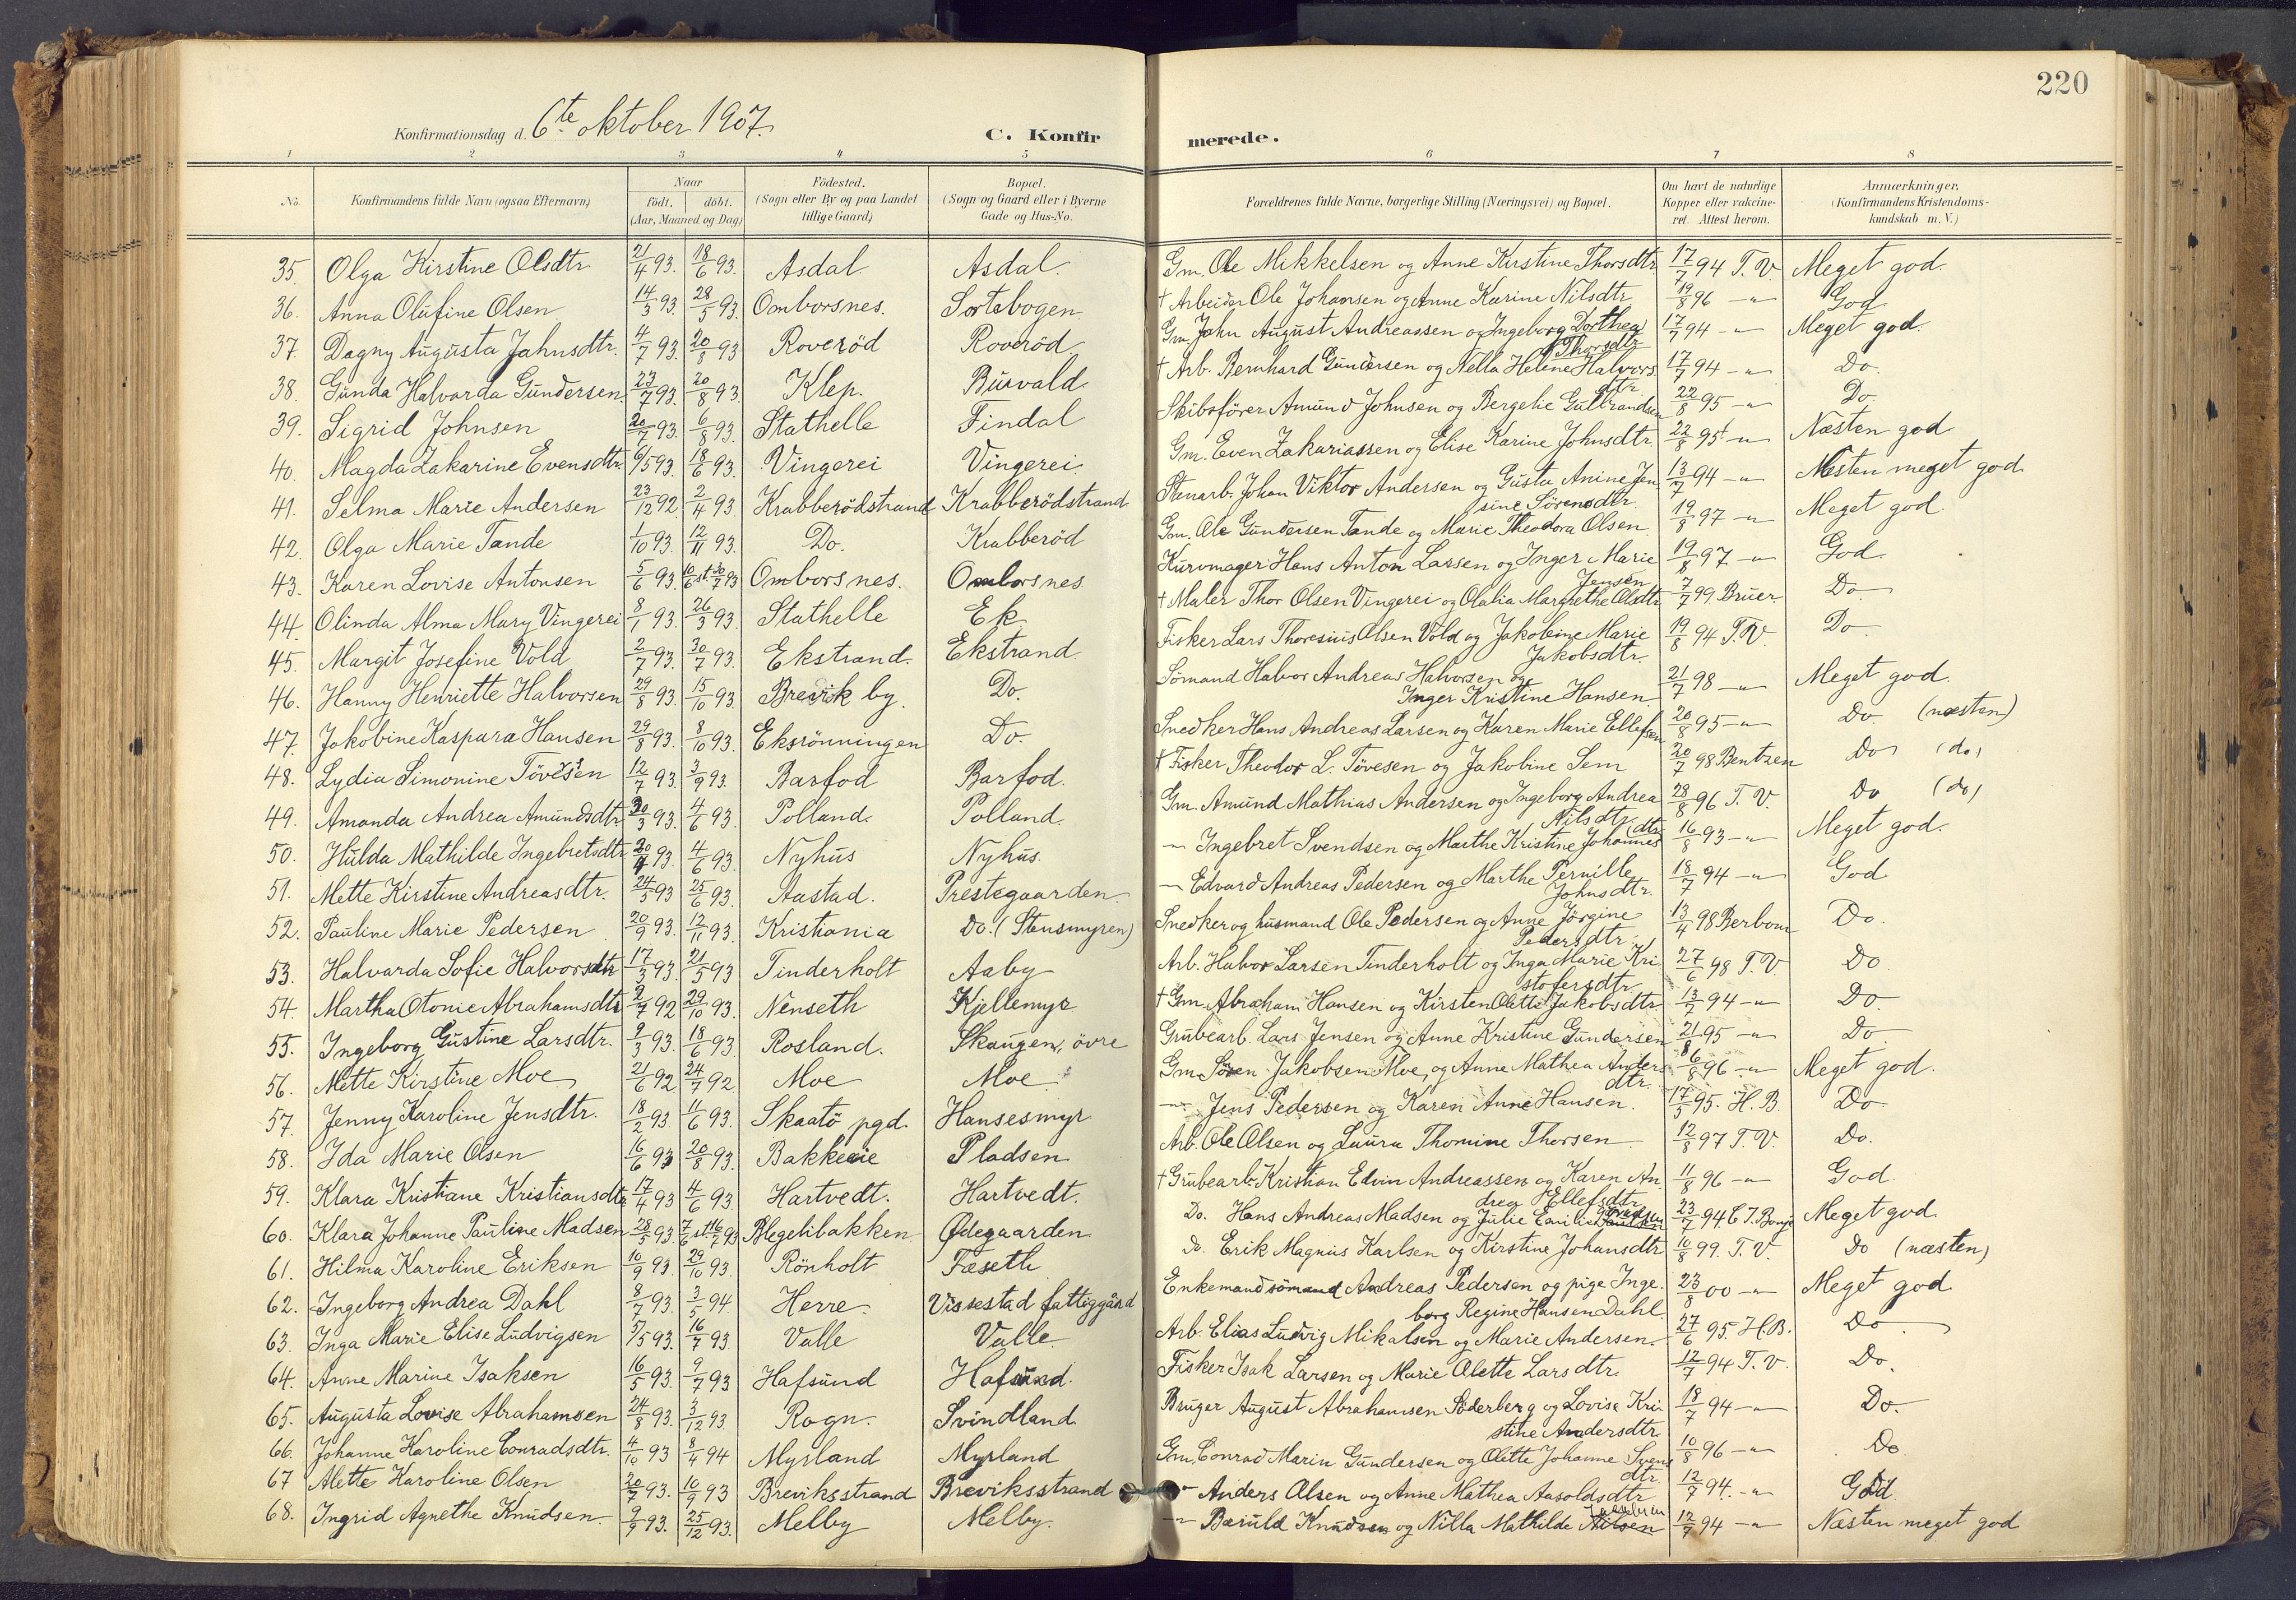 220
Konfirmationsdag d. 6te oktober 1907.
C. Konfirmerede.
1 2 3 4 5 6 7 8
No. Konfirmandens fulde Navn (ogsaa Efternavn) Naar födt. döbt. (Aar, Maaned og Dag) Födested. (Sogn eller By og paa Landet tillige Gaard) Bopæl. (Sogn og Gaard eller i Byerne Gade og Hus-No. Forældrenes fulde Navne, borgerlige Stilling (Næringsvei) og Bopæl. Om havt de naturlige Kopper eller vakcineret. Attest herom. Anmærkninger. (Konfirmandens Kristendomskundskab m. V.)
35. Olga Kirstine Olsdtr 21/4 93. 18/6 93. Asdal Asdal. Gm. Ole Mikkelsen og Anne Kirstine Thorsdtr. 17/7 94 T. V. Meget god.
36. Anna Olufine Olsen 14/3 93. 28/5 93. Omborsnes. Sortebogen † Arbeider Ole Johansen og Anne Karine Nilsdtr 19/8 96 -"- God
37. Dagny Augusta Jahnsdtr. 4/7 93. 20/8 93 Roveröd Roveröd Gm. Jahn August Andreassen og Ingeborg Dorthea Thorsdtr 17/7 94 -"- Meget god.
38. Gunda Halvarda Gundersen 23/7 93. 20/8 93. Klep. Buvald † Arb. Bernhard Gundersen og Nella Helene Halvorsdtr 17/7 94 -"- Do.
39. Sigrid Johnsen 20/7 93. 6/8 93. Stathelle Findal Skibsförer Amund Johnsen og Bergelie Gulbrandsen 22/8 95 -"- Do.
40. Magda Zakarine Evensdtr. 6/5 93 18/6 93. Vingerei Vingerei Gm. Even Zakariassen og Elise Karine Johnsdtr 22/8 95 -"- Næsten god
41. Selma Marie Andersen 23/12 92. 2/4 93. Krabberödstrand Krabberödstrand Stenarb. Johan Viktor Andersen og Gusta Anine Jensine Sörensdtr. 13/7 94 -"- Næsten meget god.
42. Olga Marie Tande 1/10 93. 12/11 93. Do. Krabberöd Gm. Ole Gundersen Tande og Marie Theodora Olsen 19/8 97 -"- Meget god.
43. Karen Lovise Antonsen 5/6 93. 10/6 st. 30/7 93 Omborsnes. Omborsnes Kurvmager Hans Anton Larsen og Inger Marie Jensen 19/8 97 -"- God
44. Olinda Alma Mary Vingerei 8/1 93. 26/3 93. Stathelle Ek † Maler Thor Olsen Vingerei og Olalia Margrethe Olsdtr 7/7 99 Bruer Do
45. Margit Josefine Vold 2/7 93. 30/7 93. Ekstrand. Ekstrand Fisker Lars Thoresius Olsen Vold og Jakobine Marie Jakobsdtr. 19/8 94 T.V. Do
46. Hanny Henriette Halvorsen 29/8 93. 15/10 93. Brevik by. Do. Sömand Halvor Andreas Halvorsen og Inger Kristine Hansen 21/7 98 -"- Meget god.
47. Jakobine Kaspara Hansen 29/8 93. 8/10 93. Eksrönningen Do. Snedker Hans Andreas Larsen og Karen Marie Ellefsen 20/8 95 -"- Do. (næsten)
48. Lydia Simonine Tövesen 12/7 93. 3/9 93. Barfod Barfod. † Fisker Theodor L. Tövesen og Jakobine Sem 20/7 98 Bentzen Do (do)
49. Amanda Andrea Amundsdtr 30/3 93. 4/6 93. Polland. Polland. Gm. Amund Mathias Andersen og Ingeborg Andrea Nilsdtr. 28/8 96 T. V. Do (do)
50. Hulda Mathilde Ingebretsdtr 20/4 93. 4/6 93. Nyhus Nyhus. -"- Ingebret Svendsen og Marthe Kristine Johannesdtr 16/8 93 -"- Meget god.
51. Mette Kirstine Andreasdtr. 24/5 93 25/6 93. Aastad. Prestegaarden. -"- Edvard Andreas Pedersen og Marthe Pernille Johnsdtr. 18/7 94 -"- God
52. Pauline Marie Pedersen 20/9 93. 12/11 93. Kristiania Do. (Stensmyren) Snedker og husmand Ole Pedersen og Anne Jörgine Pedersdtr. 13/4 98 Berbom Do.
53. Halvarda Sofie Halvorsdtr 17/3 93. 21/5 93 Tinderholt Aaby Arb. Halvor Larsen Tinderholt og Inga Marie Kristofersdtr 27/6 98 T.V Do
54. Martha Otonie Abrahamsdtr 2/7 92 29/10 93. Nenseth Kjellemyr † Gm. Abraham Hansen og Kirsten Olette Jakobsdtr. 13/7 94 -"- Do
55. Ingeborg Gustine Larsdtr. 9/3 93. 18/6 93. Rosland. Skaugen, övre Grubearb. Lars Jensen og Anne Kristine Gundersen 21/8 95 -"- Do
56. Mette Kirstine Moe 21/6 92. 24/7 92 Moe Moe Gm. Sören Jakobsen Moe, og Anne Mathea Andersdtr. 6/8 96 -"- Meget god.
57. Jenny Karoline Jensdtr. 18/2 93. 11/6 93. Skaatö pgd. Hansesmyr -"- Jens Pedersen og Karen Anne Hansen. 17/5 95. H. B. Do
58. Ida Marie Olsen 16/6 93 20/8 93. Bakkeeie Pladsen Arb. Ole Olsen og Laura Thomine Thorsen 12/8 97 T. V. Do.
59. Klara Kristiane Kristiansdtr 17/4 93 4/6 93. Hartvedt. Hartvedt. † Grubearb. Kristian Edvin Andreassen og Karen Andrea Ellefsdtr 11/8 96 -"- God.
60. Klara Johanne Pauline Madsen 28/5 93. 7/6 st. 16/7 93 Blegelibakken Ødegaarden Do. Hans Andreas Madsen og Julie Emilie 23/7 94 Meget god.
61. Hilma Karoline Eriksen 10/9 93. 29/10 93. Rönholt Fæseth Do. Erik Magnus Karlsen og Kirstine Johansdtr 10/8 99. T. V. Do (næsten)
62. Ingeborg Andrea Dahl 8/7 93. 3/5 94 Herre. Vissestad fattiggård Enkemand sömand Andreas Pedersen og pige Ingeborg Regine Hansen Dahl. 23/8 00 -"- Meget god
63. Inga Marie Elise Ludvigsen 5/5 93. 16/7 93. Valle Valle Arb. Elias Ludvig Mikalsen og Marie Andersen. 27/6 95. H.B. Do
64. Anne Marine Isaksen 16/5 93. 9/7 93 Hafsund Hafsund. Fisker Isak Larsen og Marie Olette Larsdtr. 12/7 94 T. V. Do.
65. Augusta Lovise Abrahamsen 24/8 93. 3/12 93 Rogn. Svindland Bruger August Abrahamsen Söderberg og Lovise Kristine Andersdtr 18/7 94 -"- Do.
66. Johanne Karoline Conradsdtr. 4/10 93 8/4 94 Myrland Myrland Gm. Conrad Marin Gundersen og Olette Johanne Svensdtr. 10/8 96 -"- Do
67 Alette Karoline Olsen 20/7 93. 10/9 93 Breviksstrand Breviksstrand -"- Anders Olsen og Anne Mathea Aasoldsdtr 12/7 94. -"- God
68. Ingrid Agnethe Knudsen. 9/9 93. 25/12 93. Melby Melby. -"- Bæruld Knudsen og Nilla Mathilde 12/7 94 -"- Næsten meget god